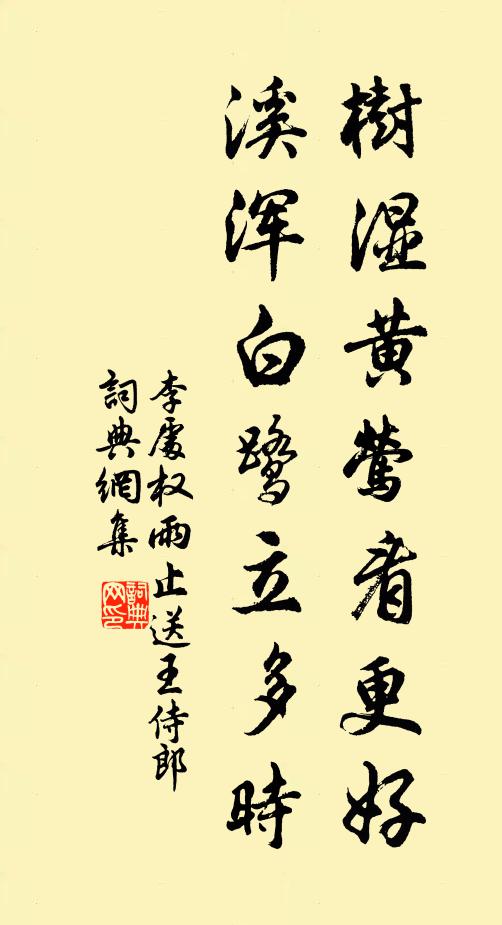 樹湿黄鶯看更好
溪浑白鷺立多時
李處权雨止送王侍郎
詞典網集
詞典网印